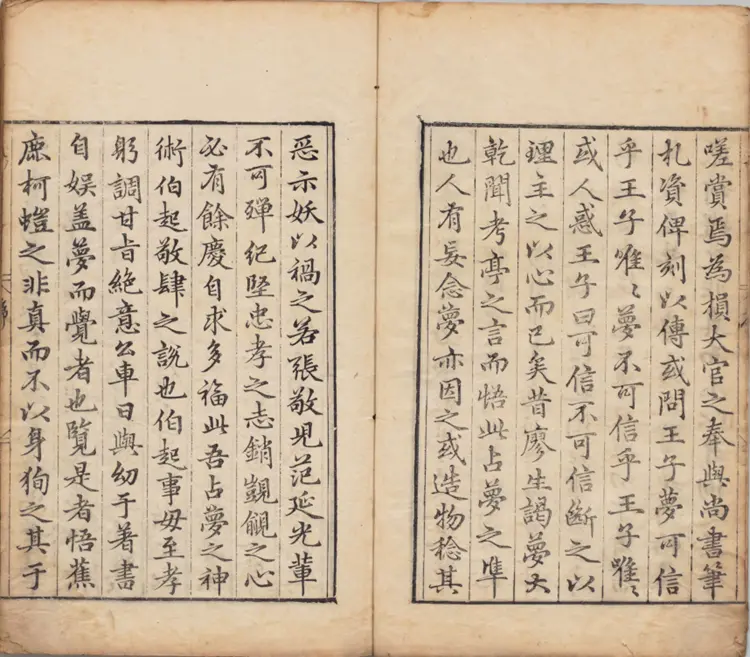 嗟賞焉為損大官之奉與尚書筆
札資俾刻以傳或問王子夢可信
乎王子唯〻夢不可信乎王子唯〻
或人惑王子曰可信不可信斷之以
理主之以心而已矣昔廖生謁夢大
乾聞考亭之言而悟此占夢之準
也人有妄念夢亦因之或造物稔其
惡示妖以禍之若張敬兒范延光輩
不可殫紀堅忠孝之志銷覬覦之心
必有餘慶自求多福此吾占夢之神
術伯起敬肆之說也伯起事毋至孝
躬調甘旨絕意公車日與幼于著書
自娛蓋夢而覺者也覽是者悟蕉
鹿柯螘之非真而不以身狥之其于